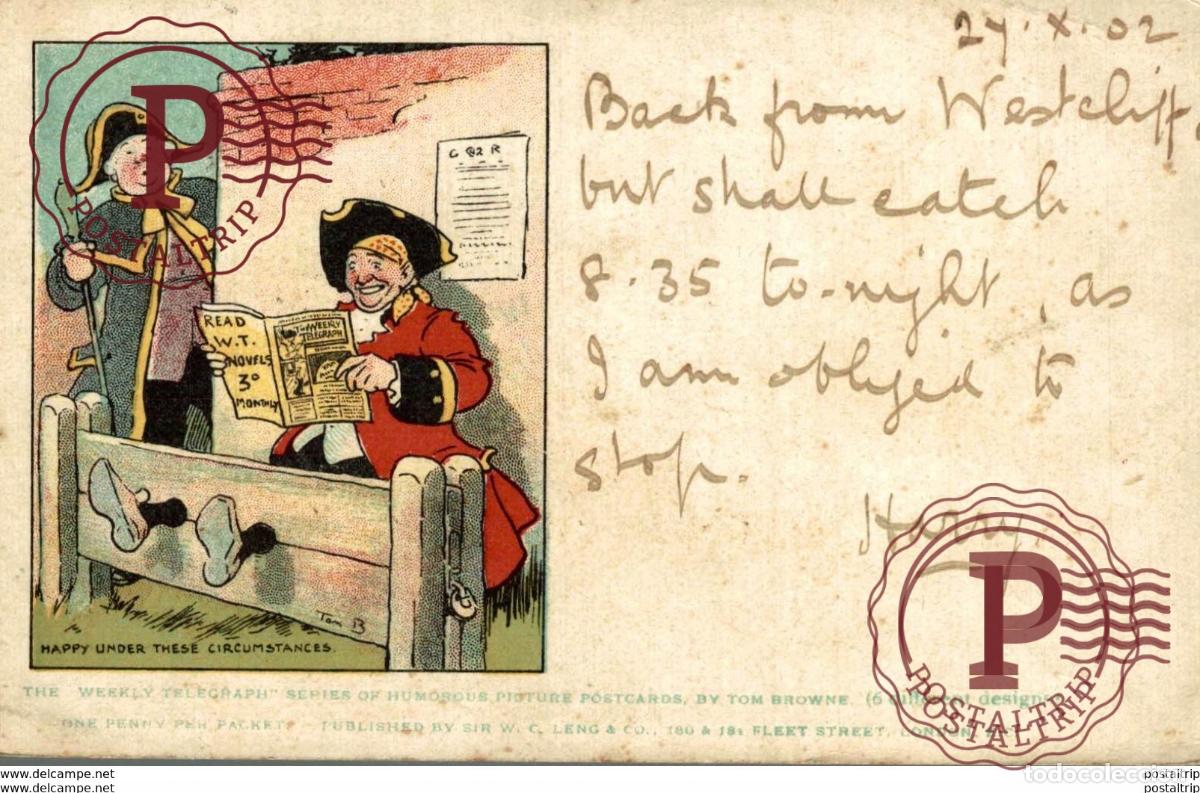 24.X.02
Back from Westcliff,
but shall catch
8.35 to-night, as
I am obliged to
stop.
G R
READ
W.T.
NOVELS
3D
MONTHLY
THE WEEKLY
TELEGRAPH
Tom B
HAPPY UNDER THESE CIRCUMSTANCES.
THE "WEEKLY TELEGRAPH" SERIES OF HUMOROUS PICTURE POSTCARDS, BY TOM BROWNE. (6 different designs
ONE PENNY PER PACKET. PUBLISHED BY SIR W. C. LENG & CO., 180 & 181 FLEET STREET, LONDON,
P
POSTALTRIP
P
POSTALTRIP
POSTALTRIP
todocoleccion
www.delcampe.net
postaltrip
www.delcampe.net
postaltrip